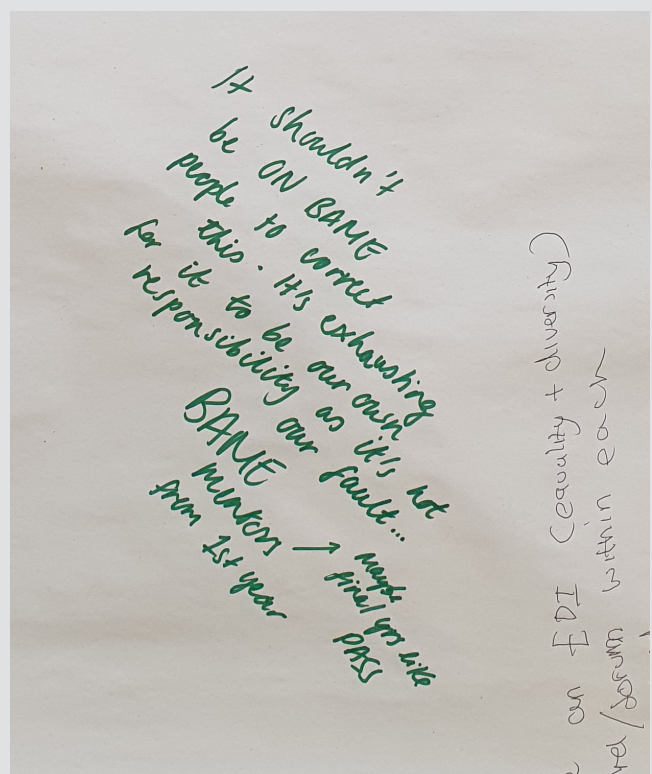 It shouldn't
be ON BAME
people to correct
this. It's exhausting
for it to be our own
responsibility as it's not
our fault...
BAME
mentors →
from 1st year
maybe
final yrs like
PASS
an EDI (equality + diversity)
/forum within each